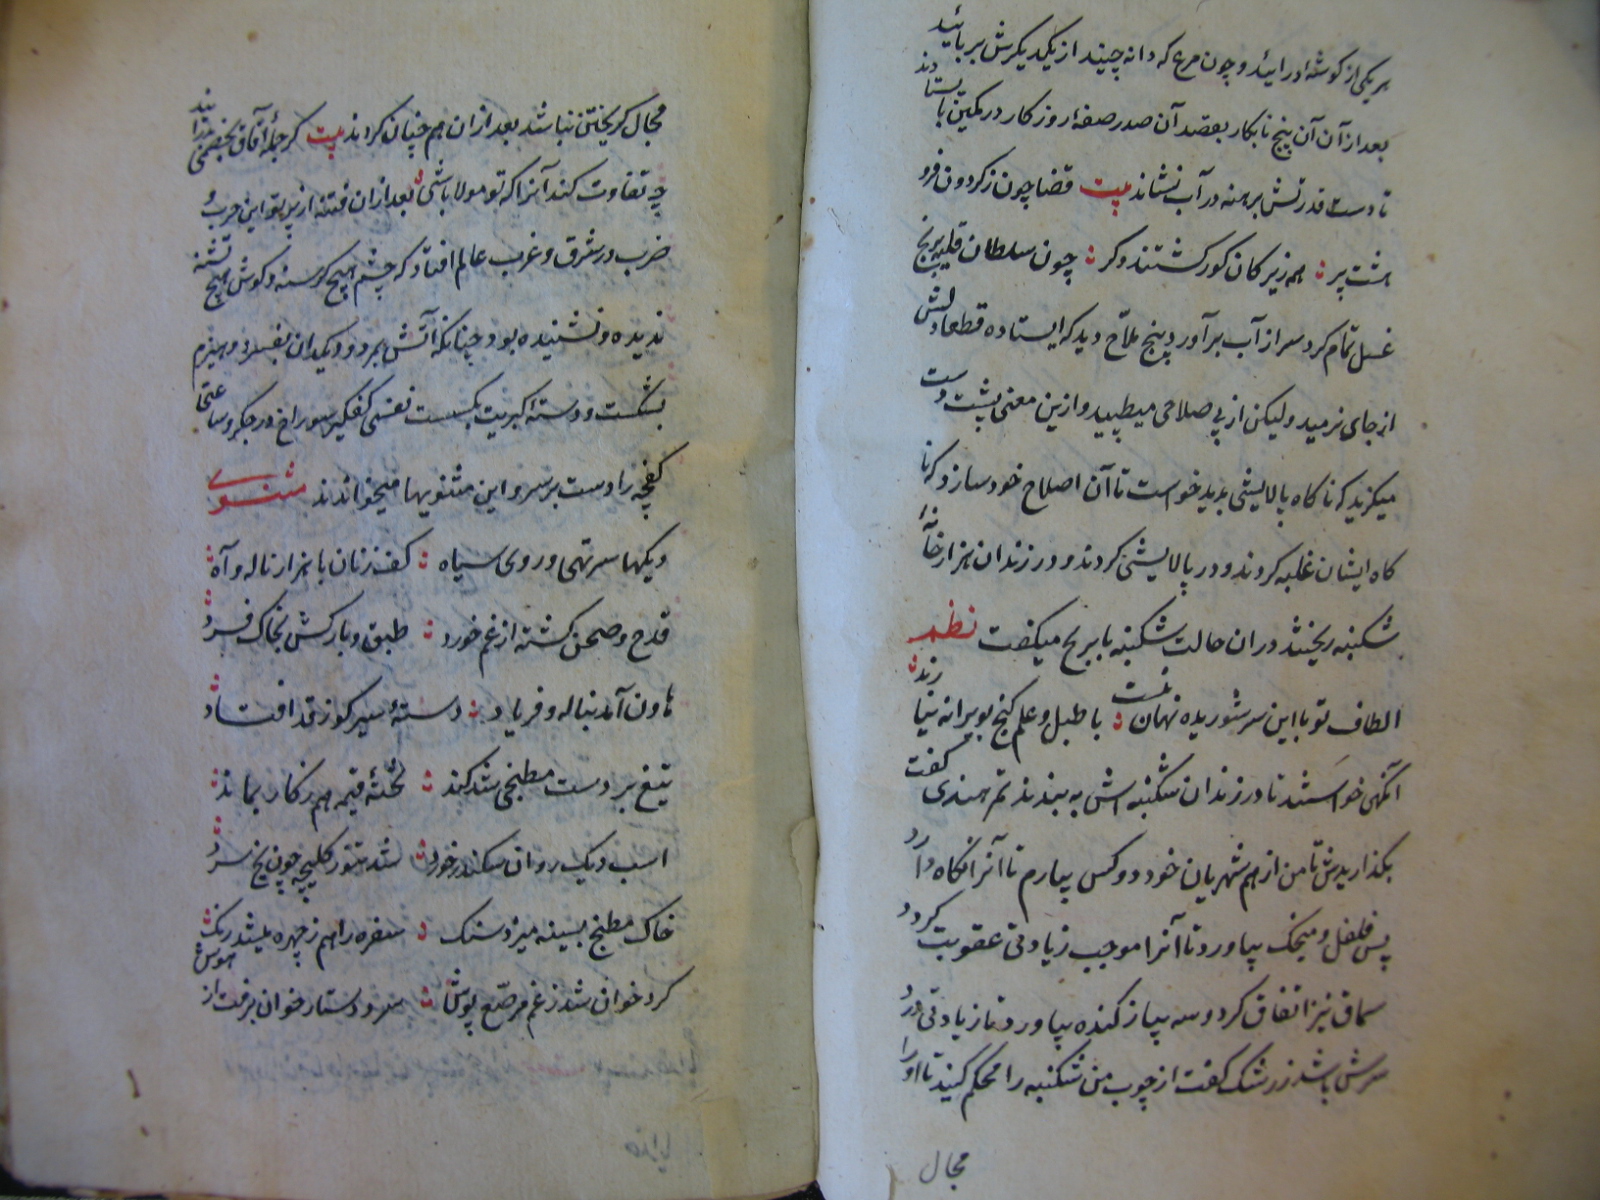 هر یکی از گوشهٔ درآیید و چون مرغ که دانه چیند از یکدیگرش بربائید
بعد از آن آن پنج نابکار بقصد آن صدر صفهٔ روزکار در کمین بایستادند
تا دست قدرتش برهنه در آب نشاند بیت قضا چون ز کردون فرو
هشت پر همه زیرکان کور کشتند و کر چون سلطان قلیه برنج
غسل تمام کرد سر از آب برآورد پنج ملاح دید که ایستاده قطعا دلش
از جای نرمید ولیکن از پی صلاحی میطپید و ازین معنی پشت دست
میکزید که ناکاه پالایشی بدید خواست تا آن اصلاح خود سازد که نا
کاه ایشان غلبه کردند و در پالایشی کردند و در زندان هزار خانهٔ
شکنبه ریختند در ان حالت شکنبه با برنج میکفت نظم
الطاف تو با این سر شوریده نهان نیست با طبل و علم کنج بویرانه نیارند
آنکهی خواستند تا در زندان شکنبه اش به بندند تمر هندی کفت
بکذاریدش تا من از همشهریان خود دو کس بیارم تا آنرا نکاه دارد
پس فلفل و میخک بیاورد تا آنرا موجب زیادتی عقوبت کردد
سماق نیز اتفاق کرد و سه پیاز کنده بیاورد تا زیادتی درد
سرش باشد زرشک کفت از چوب من شکنبه را محکم کنید تا او را
مجال
مجال کریختن نباشد بعد از ان هم چنان کردند بیت کر جملهٔ آفاق بخصمی بدرآیند
چه تفاوت کند آنرا که تو مولا باشی بعد از ان فتنه از پرتو این حرب و
ضرب در شرق و غرب عالم افتاد که چشم هیچ کرسنه و کوش هیچ تشنه
ندیده و نشنیده بود چنانکه آتش بمرد و دیکدان بفسرد و هیزم
بشکست و دستهٔ کبریت بکسست نفسی کفکیر سوراخ در جکر و ساعتی
کفچه را دست بر سر و این مثنویها میخواندند مثنوی
دیکها سرتهی و روی سیاه کف زنان با هزار ناله و آه
قدح و صحن کشته از غم خورد طبق و بارکش بخاک فرو
هاون آمد بناله و فریاد دستهٔ سیر کوز قد افتاد
تیغ بر دست مطبخی شد کند تختهٔ قیمه هم ز کار بماند
اسب دیک روان سکندر خورد شد تنور کلیچه چون یخ سرد
خاک مطبخ بسینه میزد سنک سفره را هم ز چهره میشد رنک
کرد خوان شد ز غم مرصع پوش سر و دستار خوان برفت از هوش